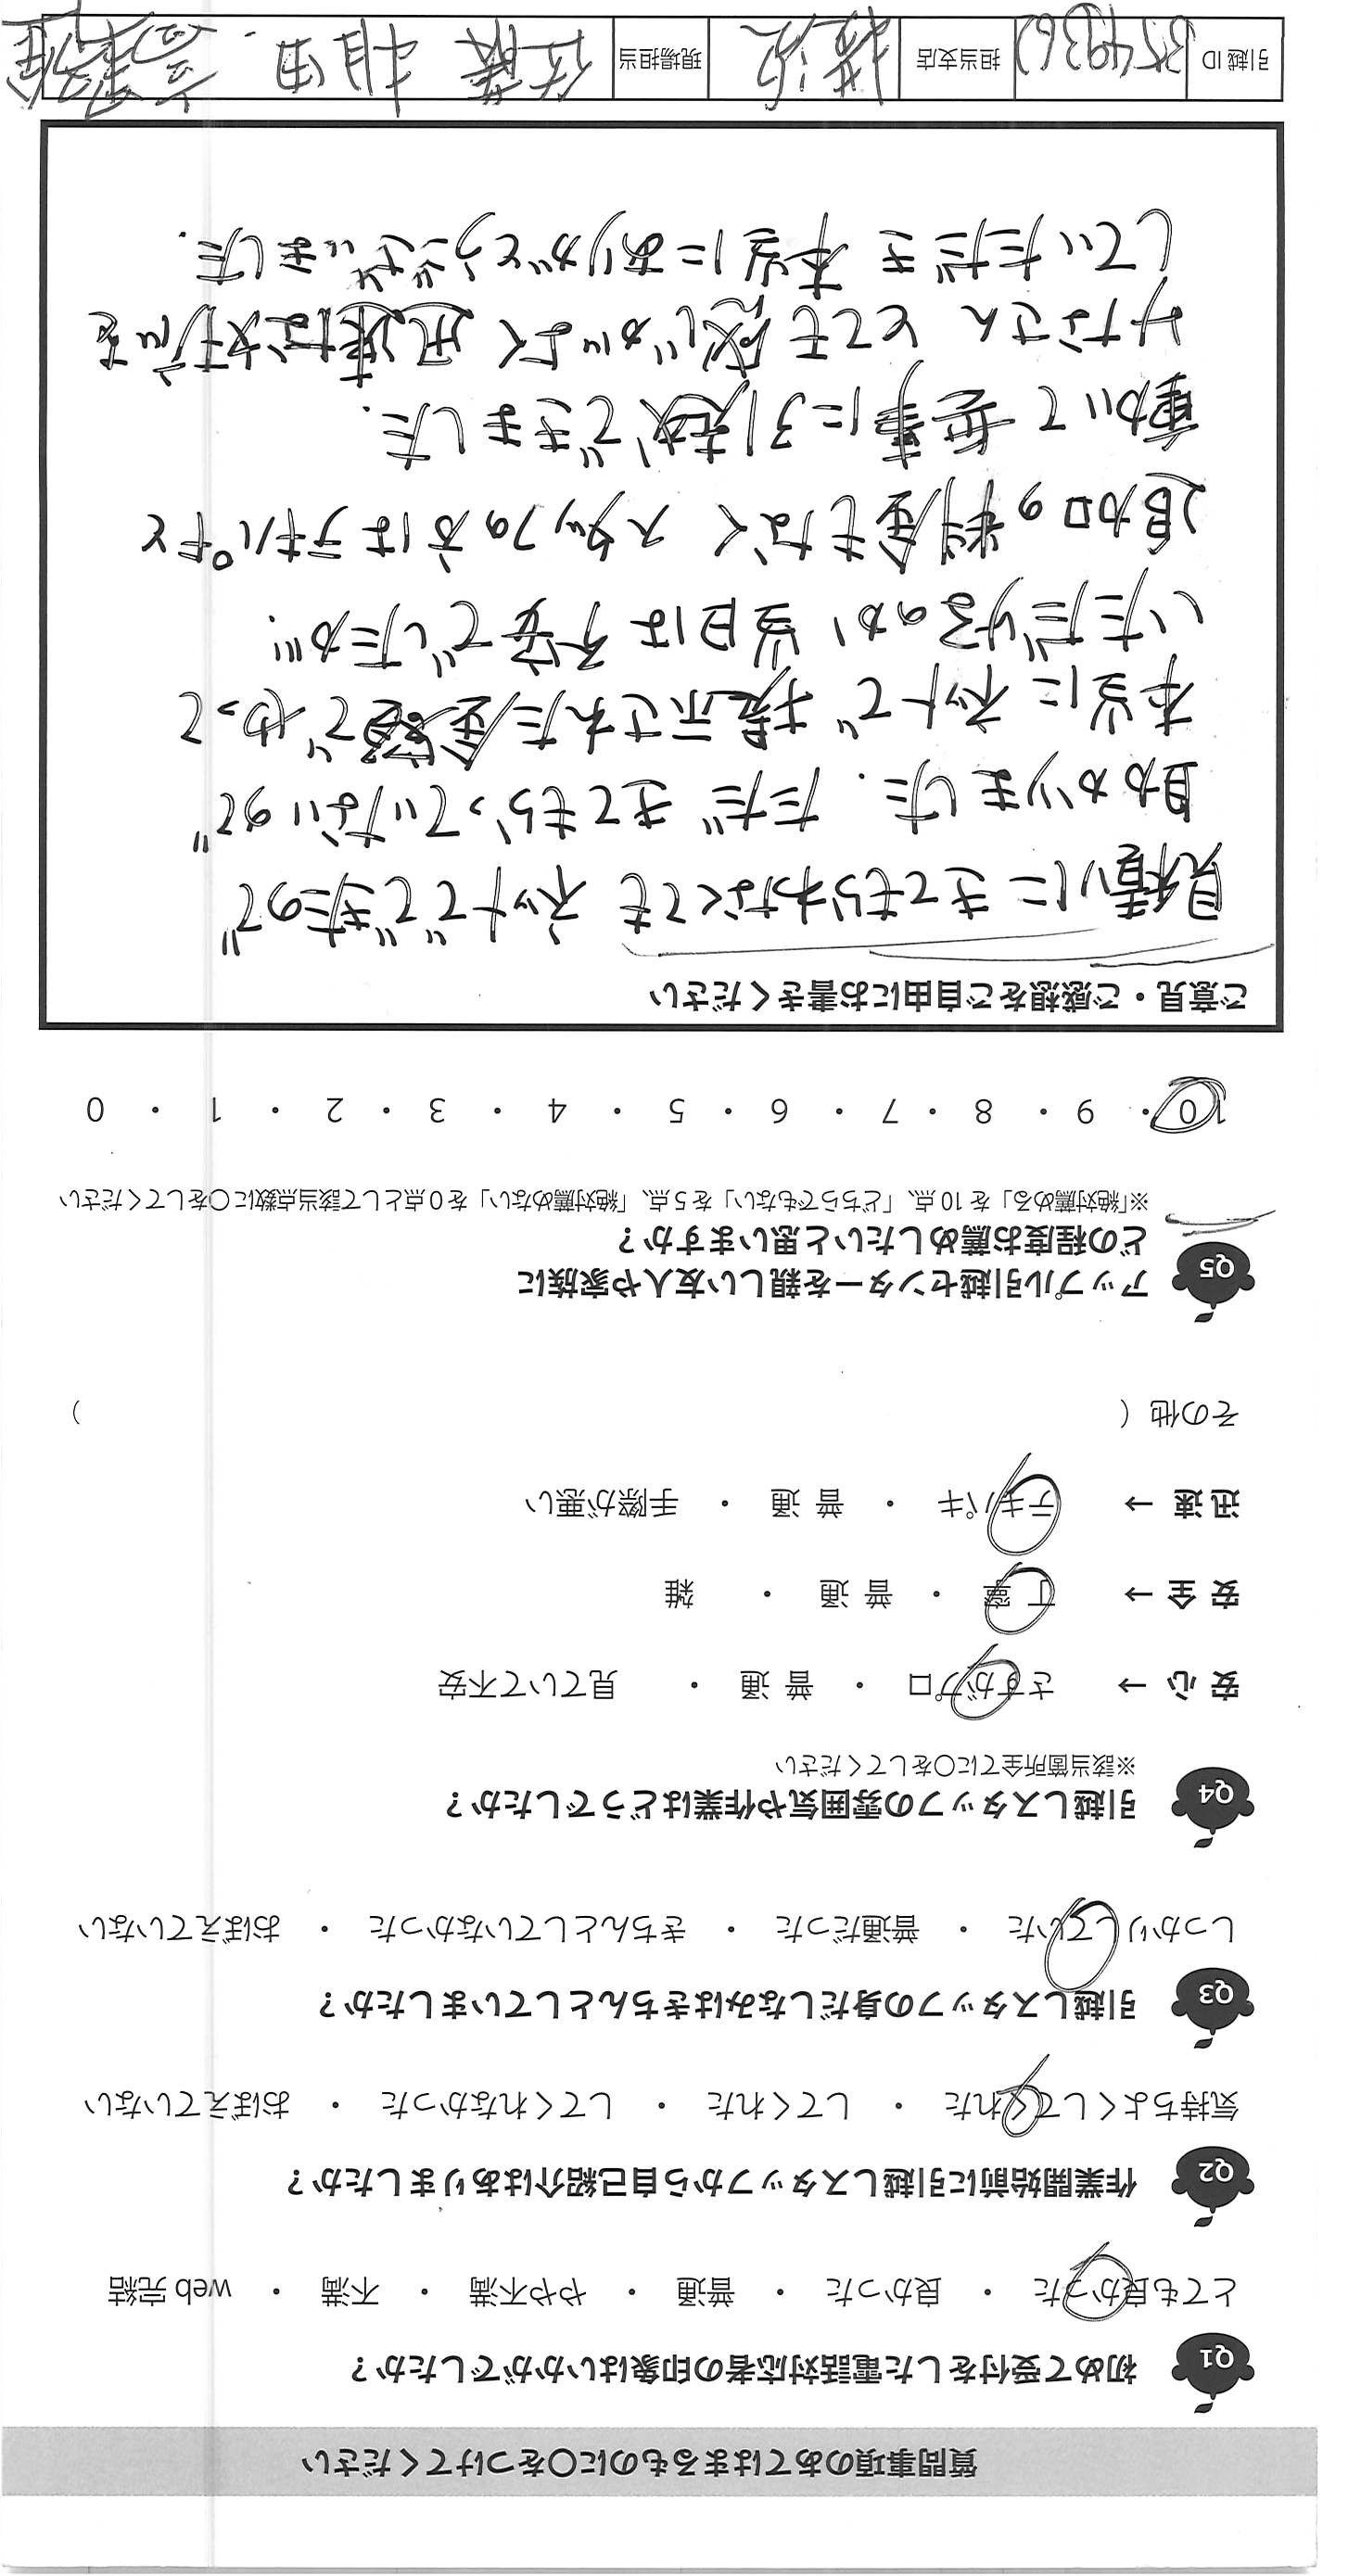 質問事項のあてはまるものに〇をつけてください
Q1 初めて受付をした電話対応者の印象はいかがでしたか？
とても良かった ・ 良かった ・ 普通 ・ やや不満 ・ 不満 ・ web 完結
Q2 作業開始前に引越しスタッフから自己紹介はありましたか？
気持ちよくしてくれた ・ してくれた ・ してくれなかった ・ おぼえていない
Q3 引越しスタッフの身だしなみはきちんとしていましたか？
しっかりしていた ・ 普通だった ・ きちんとしていなかった ・ おぼえていない
Q4 引越しスタッフの雰囲気や作業はどうでしたか？
※該当箇所全てに〇をしてください
安 心 → さすがプロ ・ 普 通 ・ 見ていて不安
安 全 → 丁 寧 ・ 普 通 ・ 雑
迅 速 → テキパキ ・ 普 通 ・ 手際が悪い
その他（ ）
Q5 アップル引越センターを親しい友人や家族に
どの程度お薦めしたいと思いますか？
※「絶対薦める」を 10 点、「どちらでもない」を 5 点、「絶対薦めない」を 0 点として該当点数に〇をしてください
10 ・ 9 ・ 8 ・ 7 ・ 6 ・ 5 ・ 4 ・ 3 ・ 2 ・ 1 ・ 0
ご意見・ご感想をご自由にお書きください
見積りにきてもらわなくても ネットでできたので
助かりました. ただ きてもらっていないので
本当に ネットで 提示された金額で やって
いただけるのか 当日は 不安でしたが…
追加の料金もなく スタッフの方はテキパキと
動いて 無事に引越ができました.
みなさん とても感じがよく 迅速な対応を
していただき 本当にありがとうございました.
引越 ID 担当支店 横浜 現場担当 佐藤 相田.